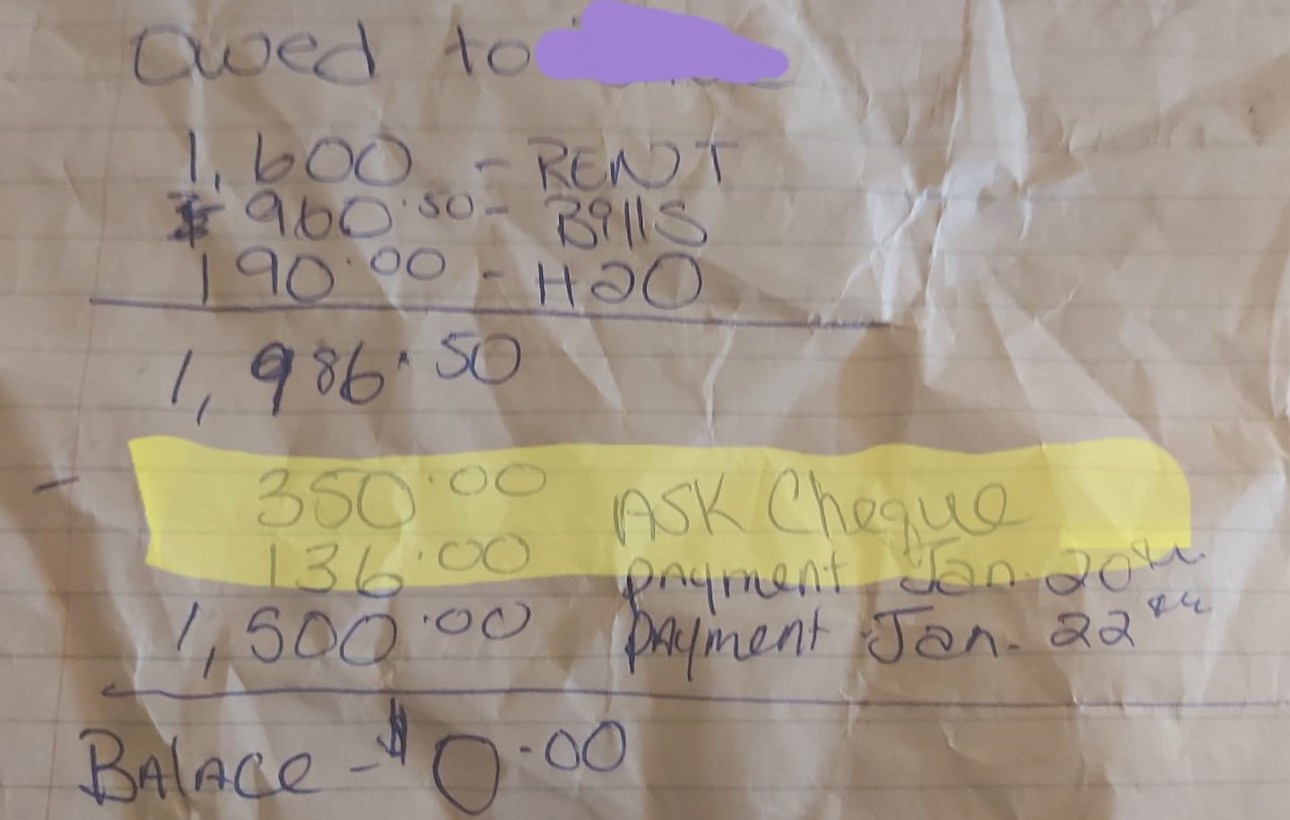 Owed to
1,600 - RENT
$ 960.50 - Bills
190.00 - H2O
1,986.50
- 350.00 ASK Cheque
136.00 payment Jan. 20th
1,500.00 payment Jan. 22th
BAlAce - $0.00